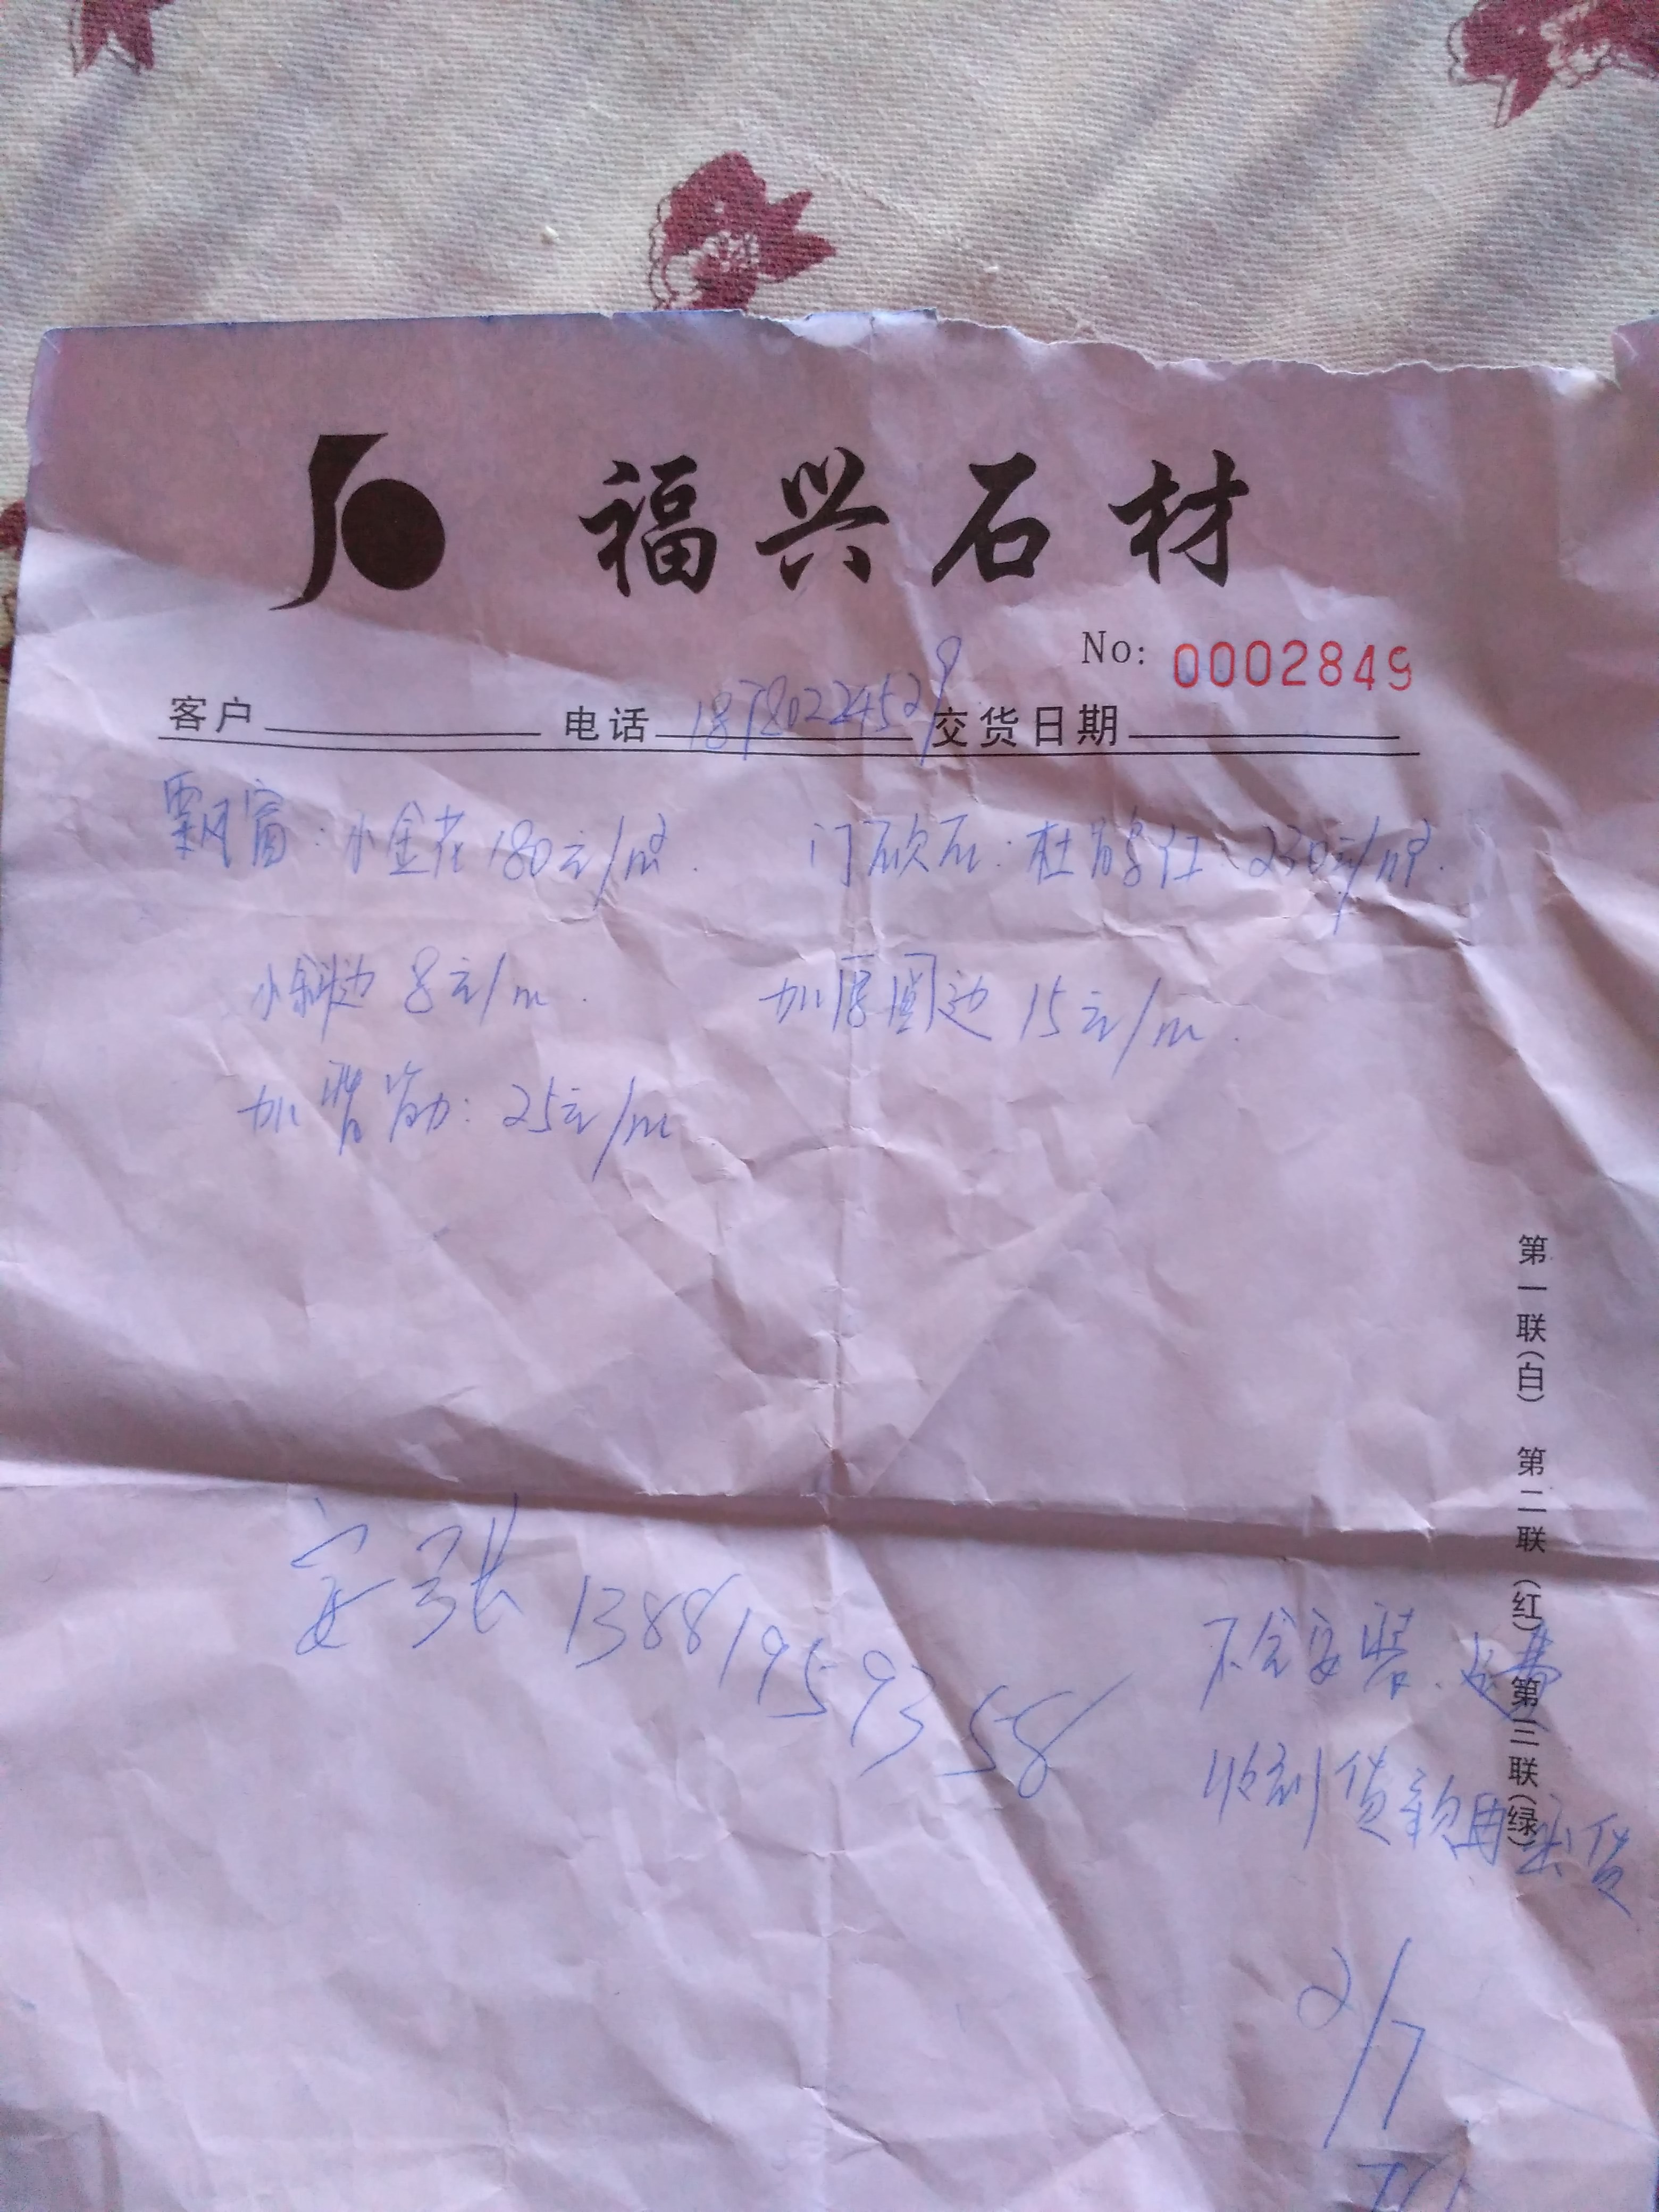 福兴石材
No: 0002849
客户 电话 18780224529 交货日期
飘窗: 小金花 180元/m². 门砍石: 杜鹃红 230元/m².
小斜边 8元/m. 加厚圆边 15元/m.
加背筋: 25元/m
安张 13881959358
不含安装. 运费
收到货款再出货
2/7
第一联(白) 第二联(红) 第三联(绿)